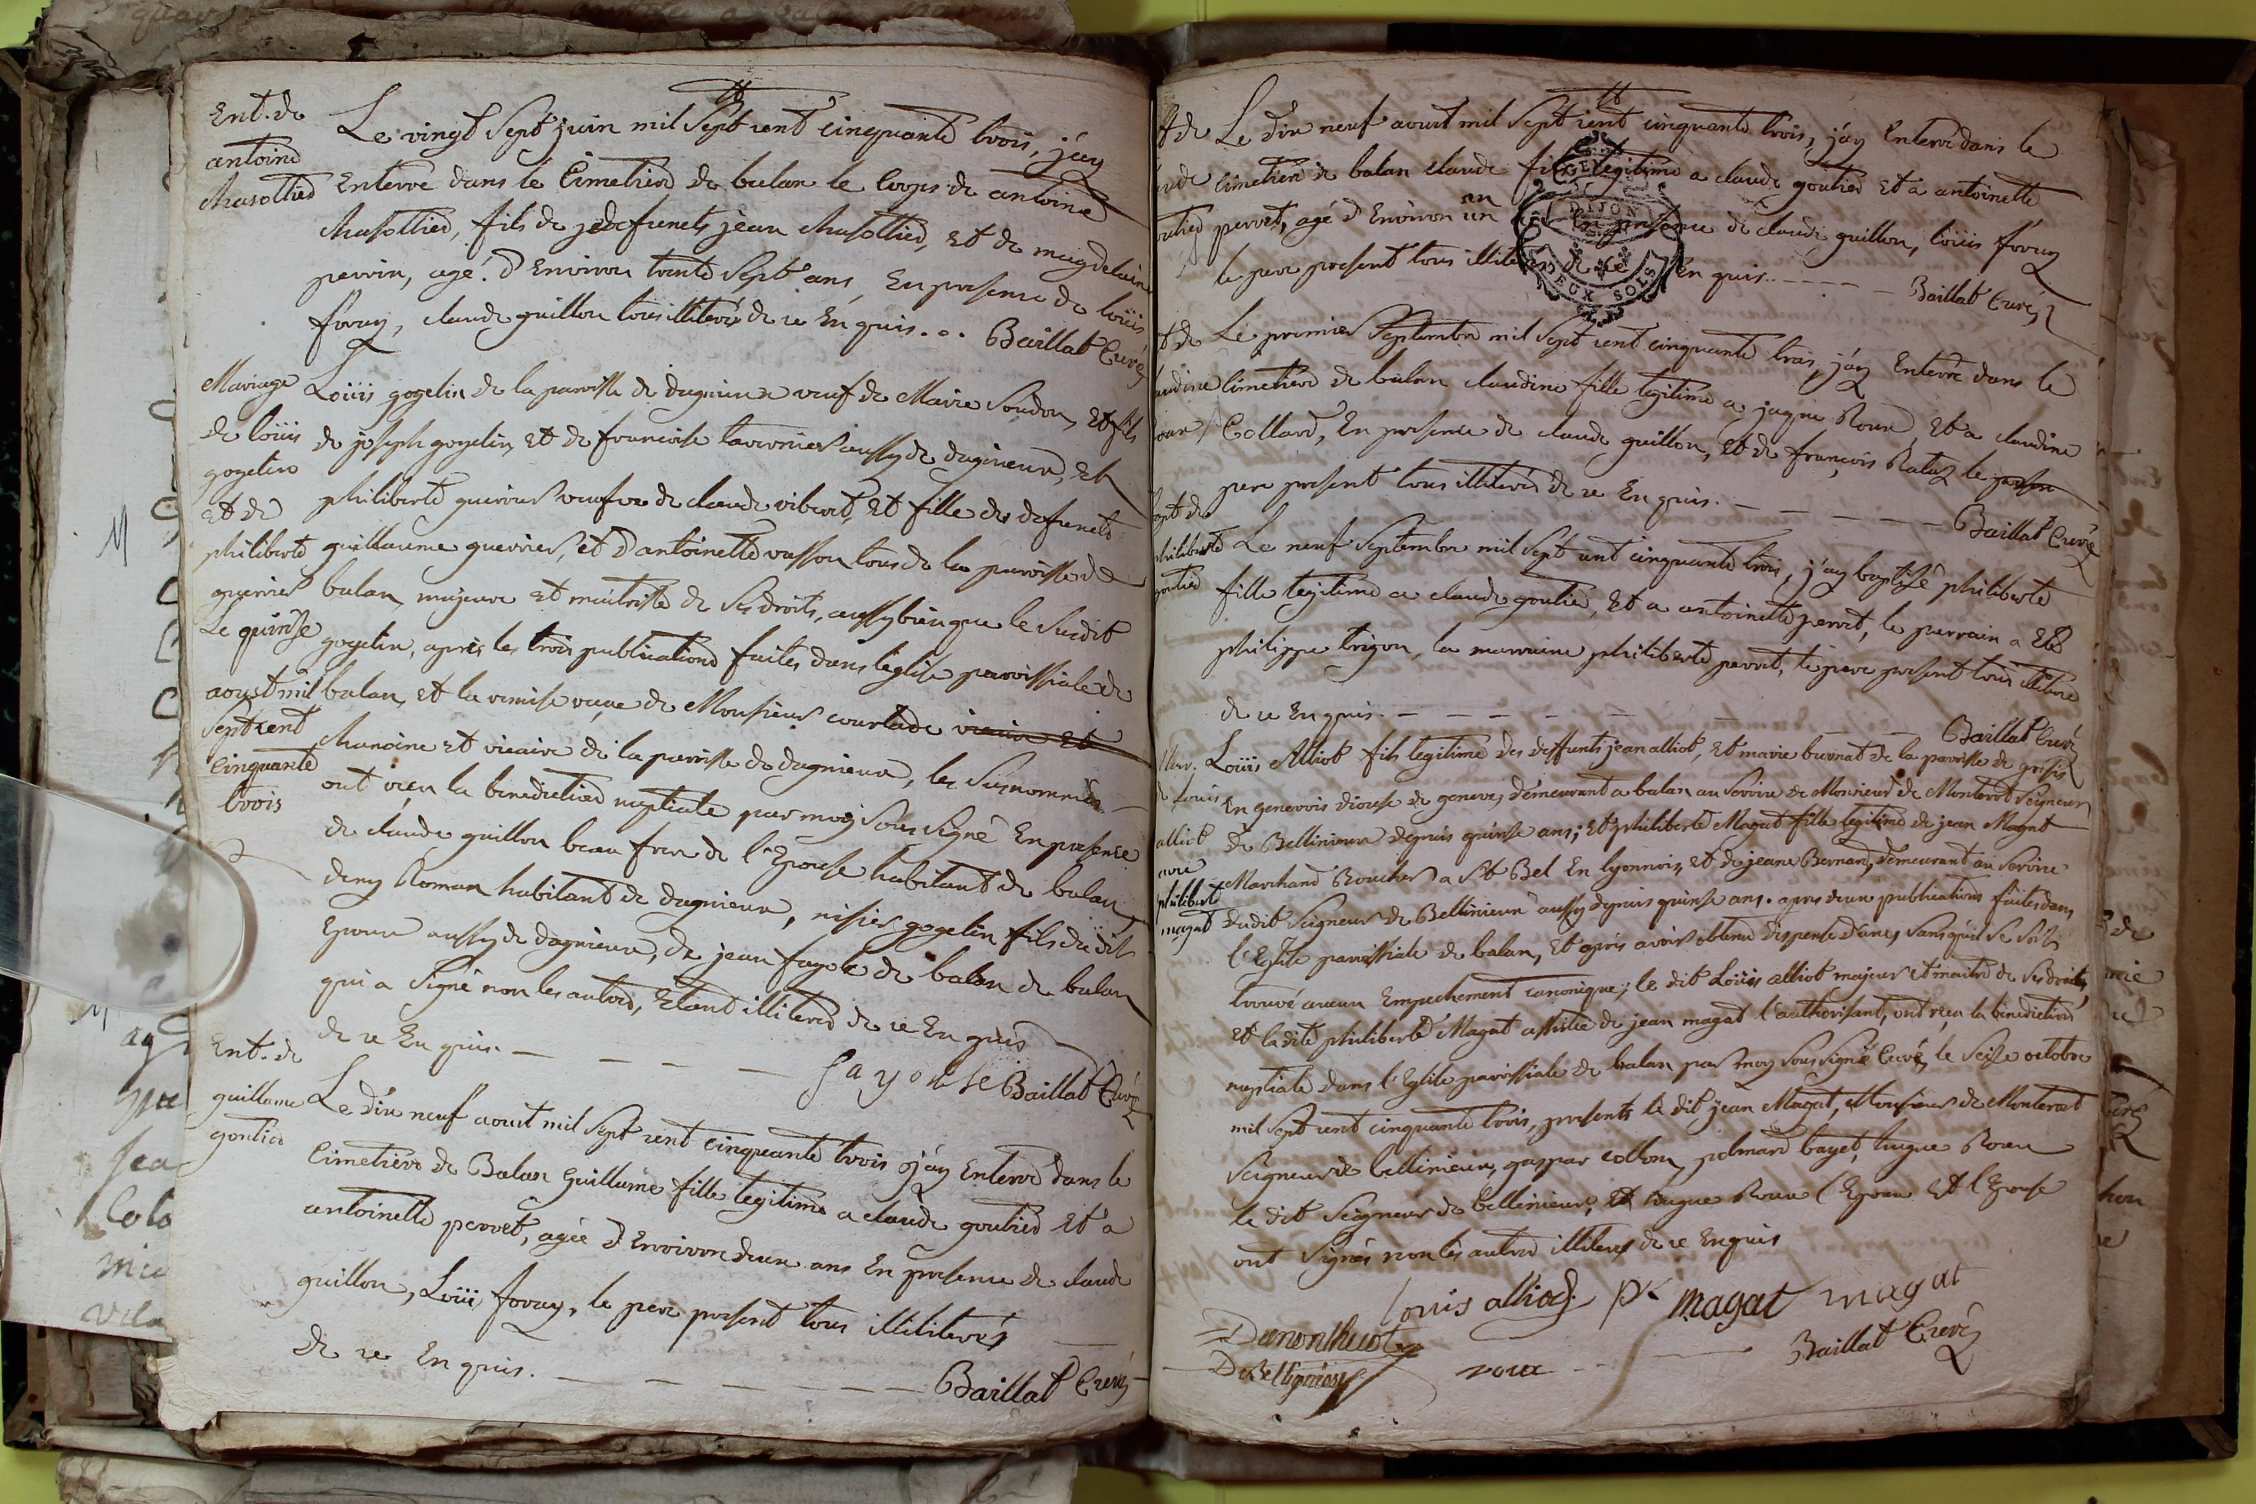 Ent. de
antoine
chasottier
Le vingt Sept juin mil Sept cent Cinquante trois, j'ay
Enterré dans le Cimetiere de balan le Corps de antoine
chasottier, fils de defunets jean chasottier, et de magdelaine
perrin, agé d'Environ trente Sept ans, En presence de loüis
foray, claude guillon tous illiteré de ce Enquis. Baillat Curé
Mariage
de loüis
gogelin
et de
philiberte
guerrier
Le quinse
aoust mil
Sept cent
Cinquante
trois
Loüis gogelin de la paroisse de dagnieux veuf de Marie Soudon, et fils
de joseph gogelin, et de francoise tavernier aussy de dagnieux, et
philiberte guerrier veufve de claude vibert, et fille de defunets
guillaume guerrier, et d'antoinette vasson tous de la paroisse de
balan, majeure et maitresse de Ses droits, aussy bien que le Susdit
gogelin, aprés les trois publications faites dans leglise parroissiale de
balan, et la remise reçue de Monsieur courtade vicaire et
chanoine et vicaire de la paroisse de dagnieux, les Susnommés
ont reçu la benediction nuptiale par moy Sous Signé En presence
de claude guillon beau frere de l'Epouse habitant de balan,
deny Roman habitant de dagnieux, nisier gogelin fils du dit
Epoux aussy de dagnieux, de jean fayole de balan de balan
qui a Signé non les autres, Etant illiteré de ce Enquis
de ce Enquis.
fayolle Baillat Curé
Ent. de
guillame
goutier
Le dix neuf aoust mil Sept cent cinquante trois j'ay Enterré dans le
Cimetiere de Balan Guillame fille legitime a claude goutier et a
antoinette perret, agée d'Environ deux ans En presence de claude
guillon, Loüi foray, le pere present tous illiterés
de ce Enquis.
Baillat Curé
Le dix neuf aoust mil Sept cent cinquante trois, j'ay Enterré dans le
Cimetiere de balan claude fils legitime a claude goutier et a antoinette
perret, agé d'Environ un an presence de claude guillon, loüis foray
le pere present tous illiteres de ce Enquis. Baillat Curé
GEN
DIJON
DEUX SOLS
Le premier Septembre mil Sept cent cinquante trois, j'ay Enterré dans le
Cimetiere de balan claudine fille legitime a jaque Roux, et a claudine
Collard, En presence de claude guillon, et de françois Ratuz le
pere present tous illiterés de ce Enquis.
Baillat Curé
bapt de
philiberte
goutier
Le neuf Septembre mil Sept cent cinquante trois, j'ay baptisé philiberte
fille legitime a claude goutier, et a antoinette perret, le parrain a Eté
philippe trigon, la marraine philiberte perret, le pere present tous illiteré
de ce Enquis.
Baillat Curé
Mar.
de Louis
alliot
avec
philiberte
magat
Loüis Alliot fils legitime des deffunts jean alliot, et marie burnat de la paroisse de
En genevois diocese de geneve, demeurant a balan au Service de Monsieur de Monterot Seigneur
de Bellinieux depuis quinse ans; et philiberte Magat fille legitime de jean Magat
Marchand Boucher a St Bel En lyonnois, et de jeane Bernard, demeurant au Service
dudit Seigneur de Bellinieux aussy depuis quinse ans. apres deux publications faites dans
l'Eglise parroissiale de balan, et aprés avoir obtenu dispense d'une, Sans qu'il Se Soit
trouvé aucun Empechement canonique; le dit Loüis alliot majeur et maitre de Ses droits,
et ladite philiberte Magat assistée de jean magat l'authorisant, ont reçu la benediction
nuptiale dans l'Eglise parroissiale de balan par moy Sous Signé Curé, le Seise octobre
mil Sept cent cinquante trois, presents le dit jean Magat, Monsieur de Monterot
Seigneur de bellinieux, gaspar collon, polmard bayet, hugue Roux
le dit Seigneur de bellinieux, et hugue Roux l'Epoux et l'Epouse
ont Signés non les autres illiteres de ce Enquis
louis alliod P. magat magat
Demontherot
roux Baillat Curé